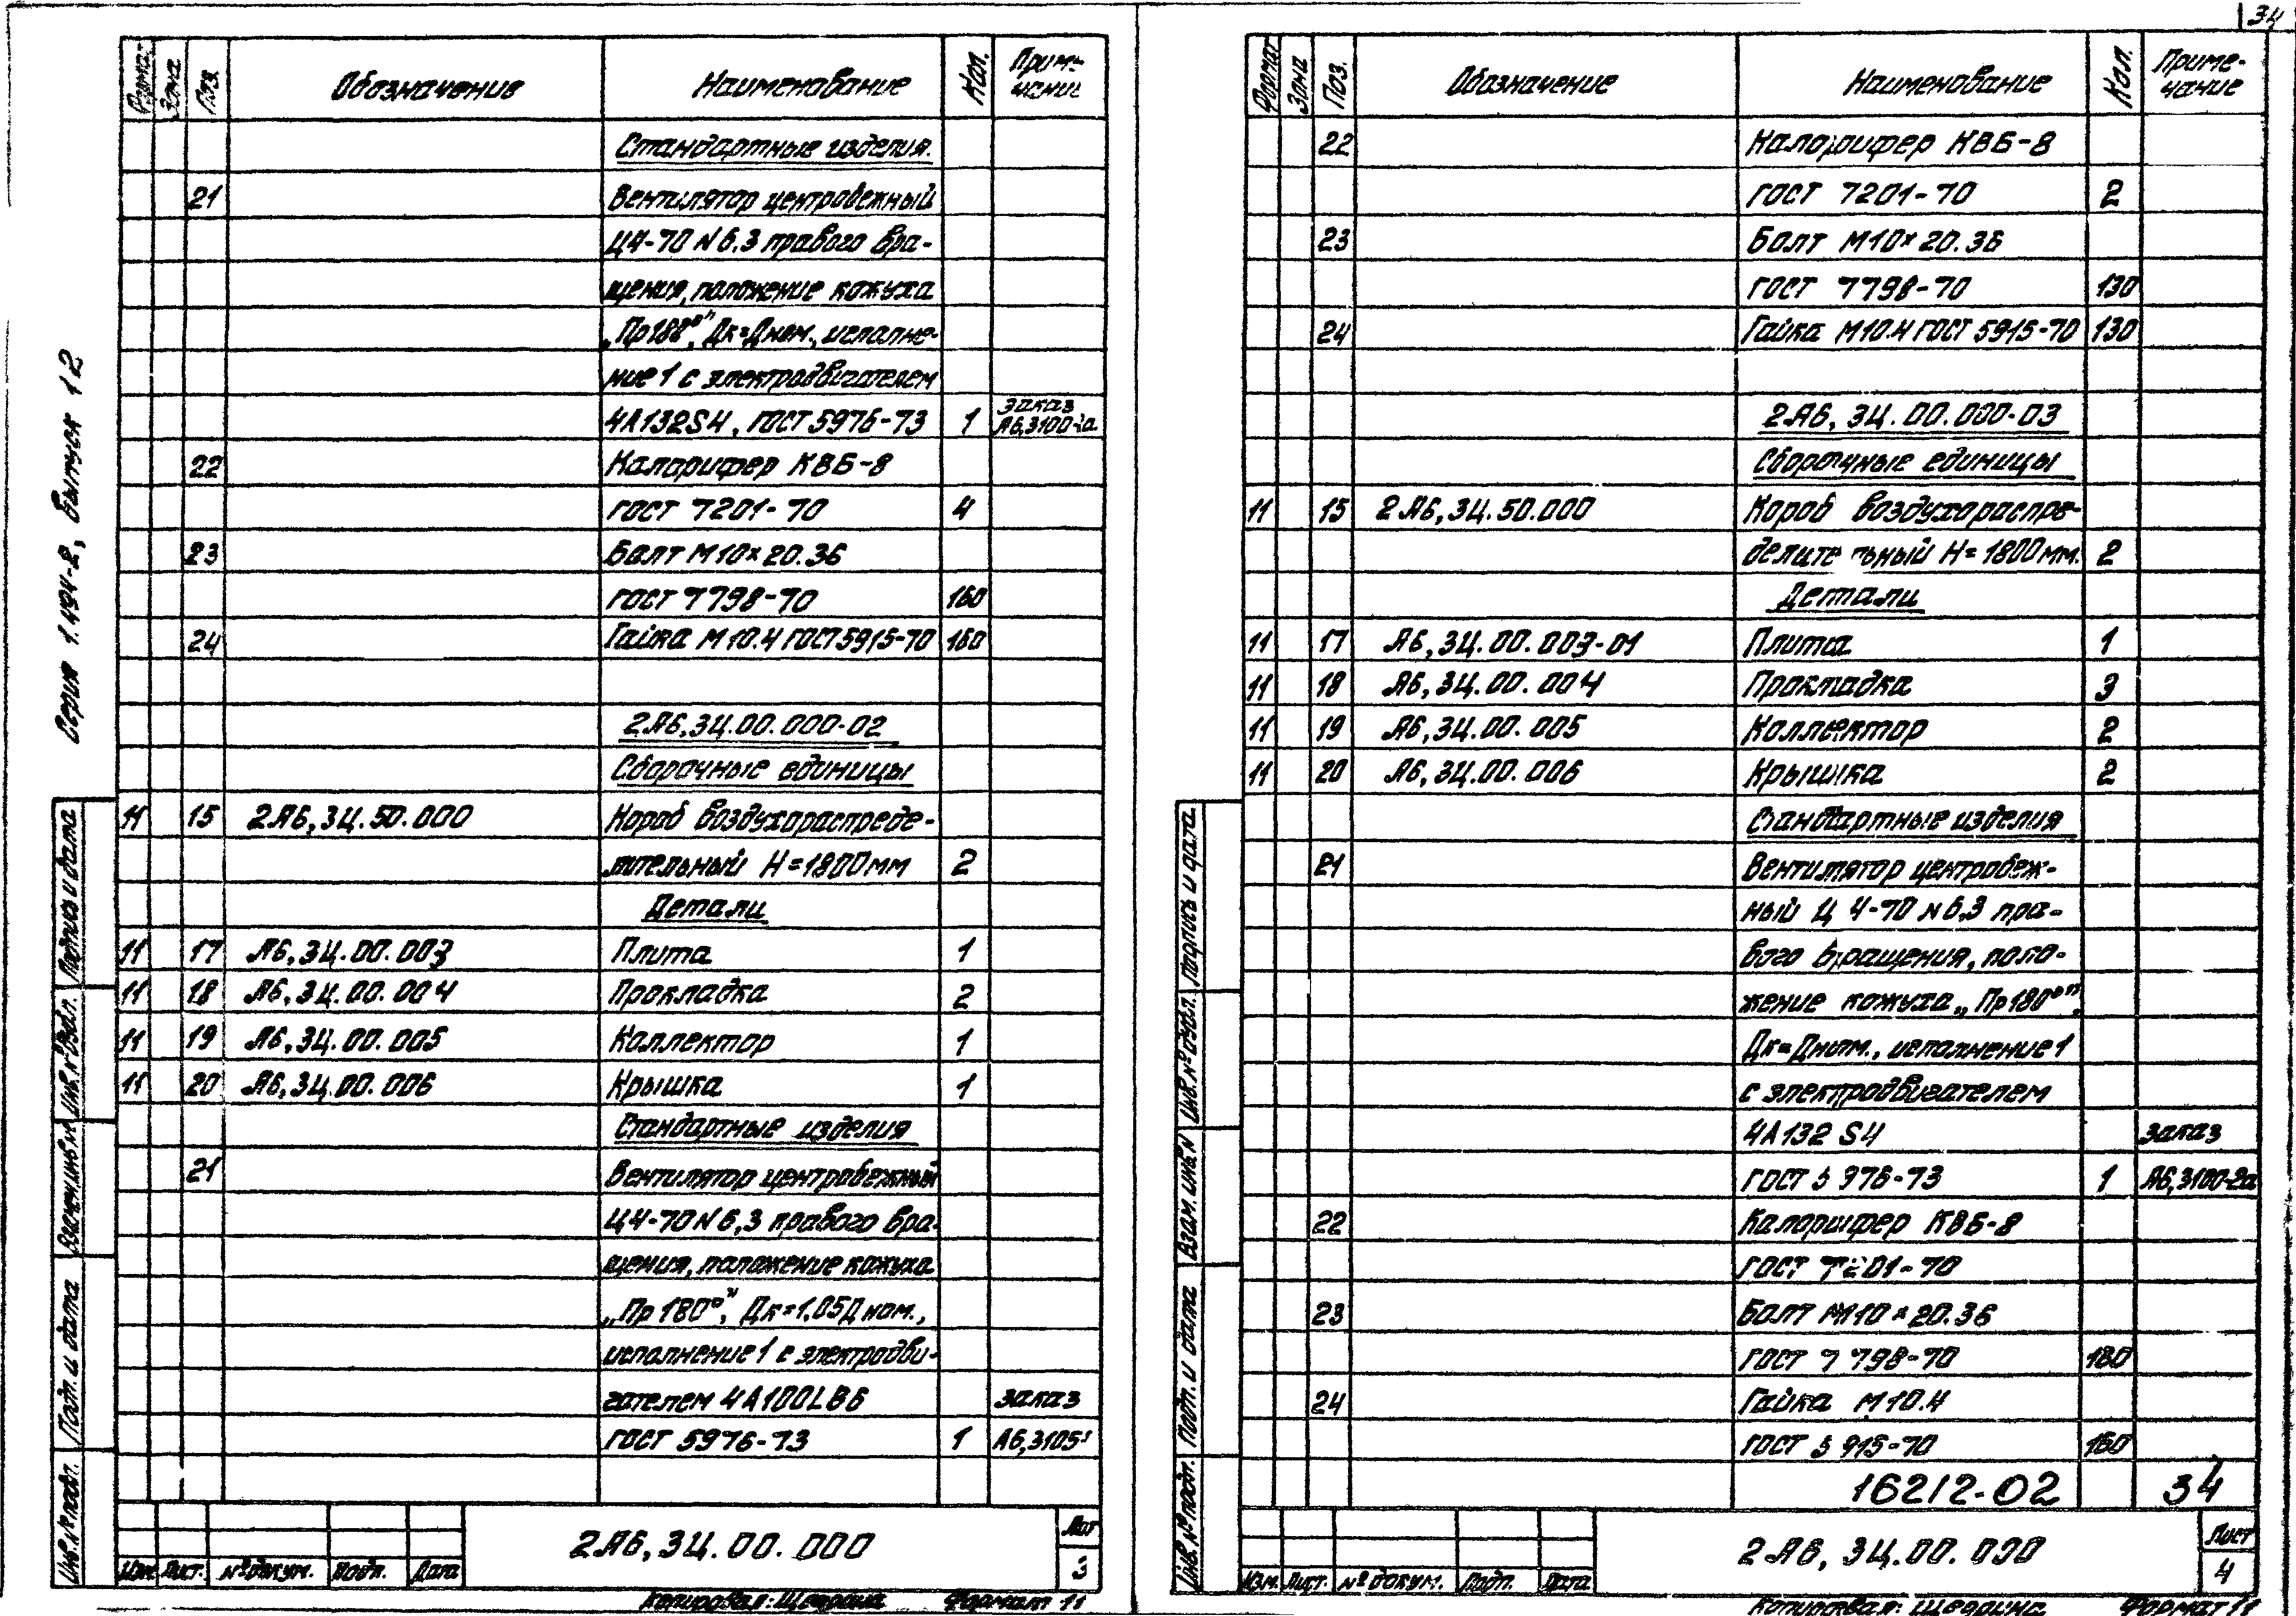 34
Серия 1.494-2, Выпуск 12
Зона Поз. Обозначение Наименование Кол. Приме-
чание
Стандартные изделия.
21 Вентилятор центробежный
Ц4-70 N6.3 правого вра-
щения, положение кожуха
„Пр180°", Дк=Дном., исполне-
ние 1 с электродвигателем
4А132S4, ГОСТ 5976-73 1 заказ
А6,3100-2а
22 Калорифер КВБ-8
ГОСТ 7201-70 4
23 Болт М10×20.36
ГОСТ 7798-70 160
24 Гайка М10.4 ГОСТ 5915-70 160
2А6,3Ц.00.000-02
Сборочные единицы
11 15 2А6,3Ц.50.000 Короб воздухораспреде-
лительный Н=1800мм 2
Детали
11 17 А6,3Ц.00.003 Плита 1
11 18 А6,3Ц.00.004 Прокладка 2
11 19 А6,3Ц.00.005 Коллектор 1
11 20 А6,3Ц.00.006 Крышка 1
Стандартные изделия
21 Вентилятор центробежный
Ц4-70 N6,3 правого вра-
щения, положение кожуха
„Пр180°", Дк=1,05Дном.,
исполнение 1 с электродви-
гателем 4А100LB6 заказ
ГОСТ 5976-73 1 А6,3105
Подпись и дата
Инв.№ дубл.
Взамен инв.№
Подп. и дата
Инв.№ подл.
2А6,3Ц.00.000
Лист
3
Изм. Лист. №докум. Подп. Дата
Копировал: Щедрина Формат 11
Формат Зона Поз. Обозначение Наименование Кол. Приме-
чание
22 Калорифер КВБ-8
ГОСТ 7201-70 2
23 Болт М10×20.36
ГОСТ 7798-70 130
24 Гайка М10.4 ГОСТ 5915-70 130
2А6,3Ц.00.000-03
Сборочные единицы
11 15 2А6,3Ц.50.000 Короб воздухораспре-
делительный Н=1800мм. 2
Детали
11 17 А6,3Ц.00.003-01 Плита 1
11 18 А6,3Ц.00.004 Прокладка 3
11 19 А6,3Ц.00.005 Коллектор 2
11 20 А6,3Ц.00.006 Крышка 2
Стандартные изделия
21 Вентилятор центробеж-
ный Ц 4-70 N6,3 пра-
вого вращения, поло-
жение кожуха „Пр180°",
Дк=Дном., исполнение 1
с электродвигателем
4А132 S4 заказ
ГОСТ 5976-73 1 А6,3100-2а
22 Калорифер КВБ-8
ГОСТ 7201-70
23 Болт М10×20.36
ГОСТ 7798-70
24 Гайка М10.4
ГОСТ 5915-70
16212-02 34
Подпись и дата
Инв.№ дубл.
Взам. инв.N
Подп. и дата
Инв.№ подл.
2А6,3Ц.00.000
Лист
4
Изм. Лист. № докум. Подп. Дата
Копировал: Щедрина Формат 11